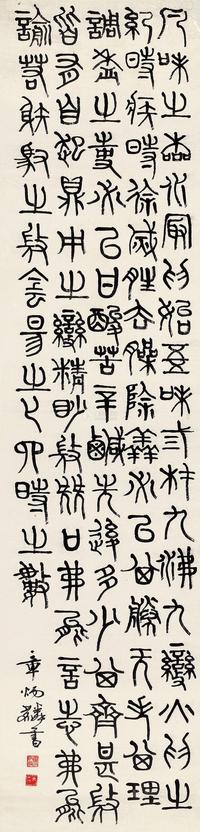 凡味之本水冣為始五味三材九沸九變火為之
紀時疾時徐滅胜去臊除羴必㠯其勝无失其理
調盉之事必㠯甘酸苦辛鹹先後多少其齊甚微
皆有自起鼎中之變精眇微纖口弗能言志弗能
諭若射御之微侌昜之匕四時之數
章炳麟書